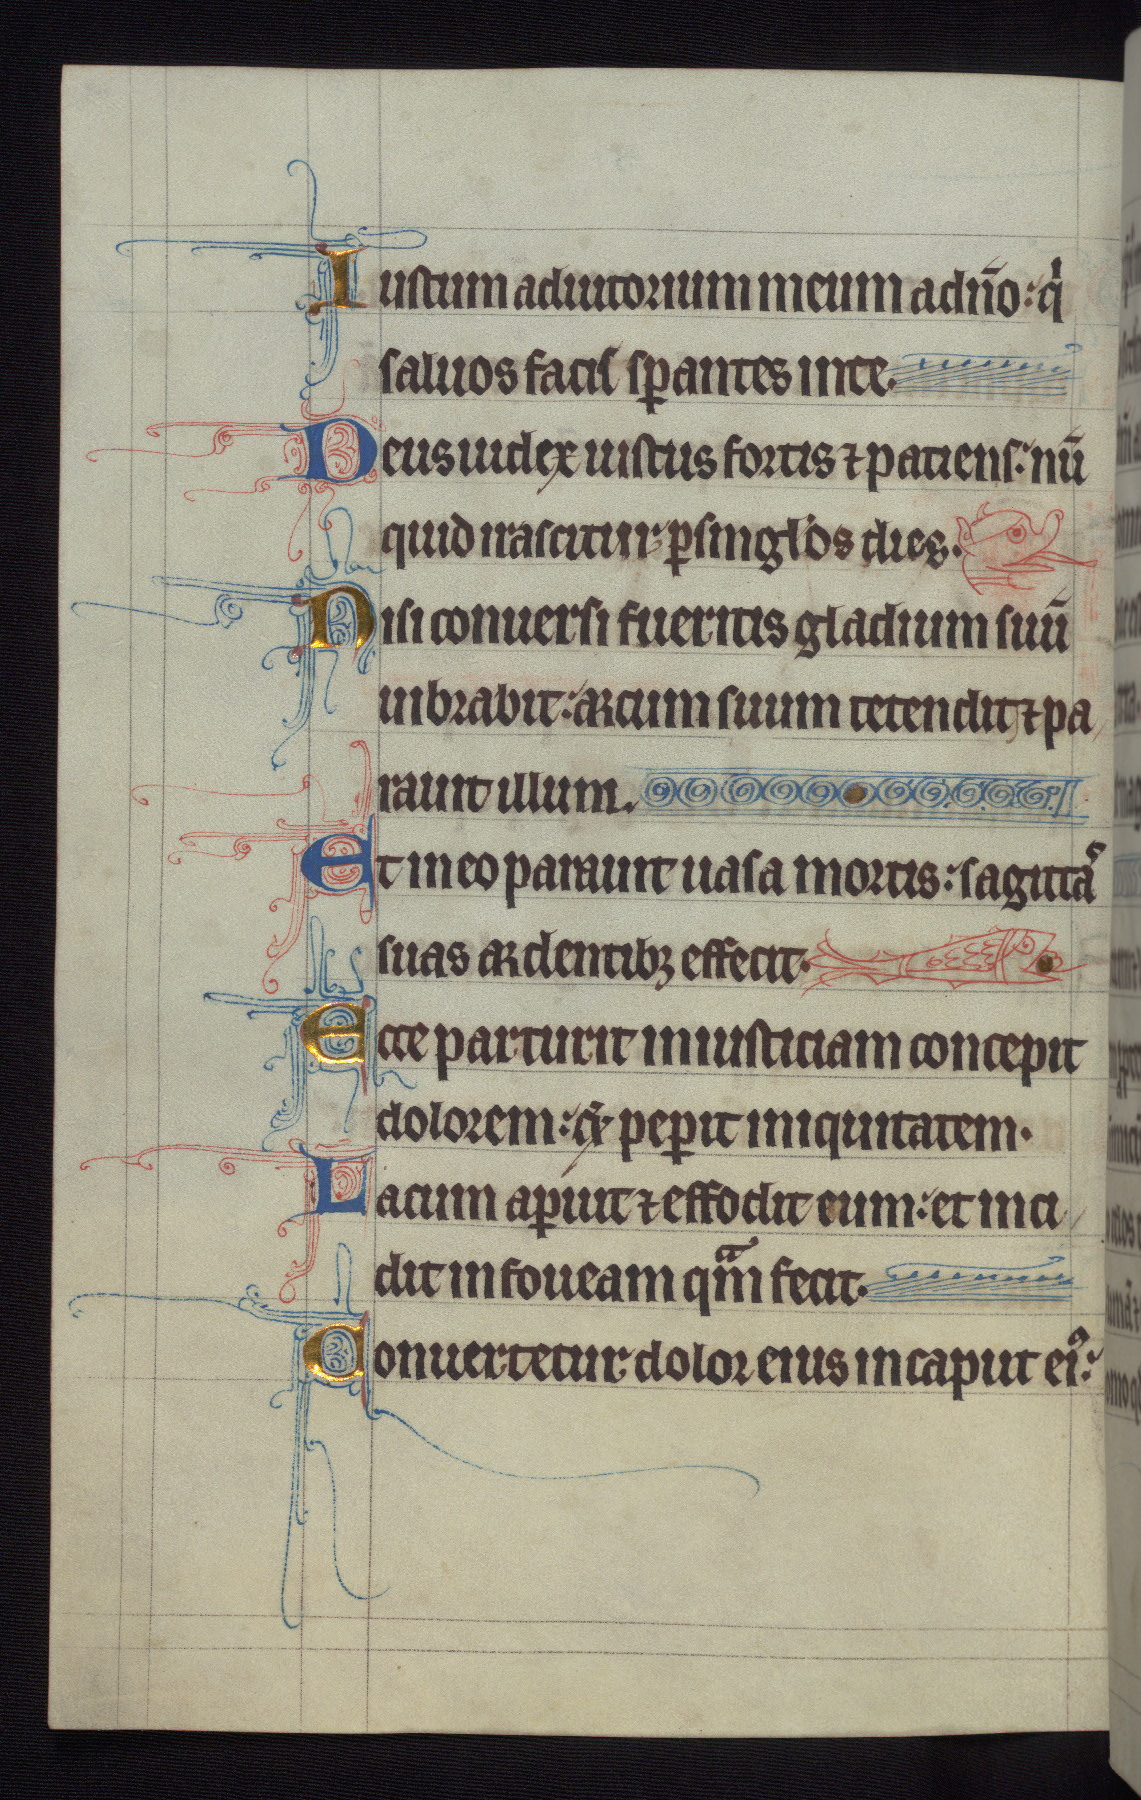 Iustum adiutorium meum a dn̄o: qͥ
saluos facis sꝑantes in te.
Deus iudex iustus fortis ⁊ patiens: nū
quid irascitur ꝑ singl'os dies.
Nisi conuersi fueritis gladium suū
uibrabit: arcum suum tetendit ⁊ pa
rauit illum.
Et in eo parauit uasa mortis: sagittaˢ
suas ardentibꝫ effecit.
Ecce parturit iniusticiam concepit
dolorem: ⁊ peꝑit iniquitatem.
Lacum aꝑuit ⁊ effodit eum: et inci
dit in foueam qᵃm fecit.
Conuertetur dolor eius in caput eiꝰ: